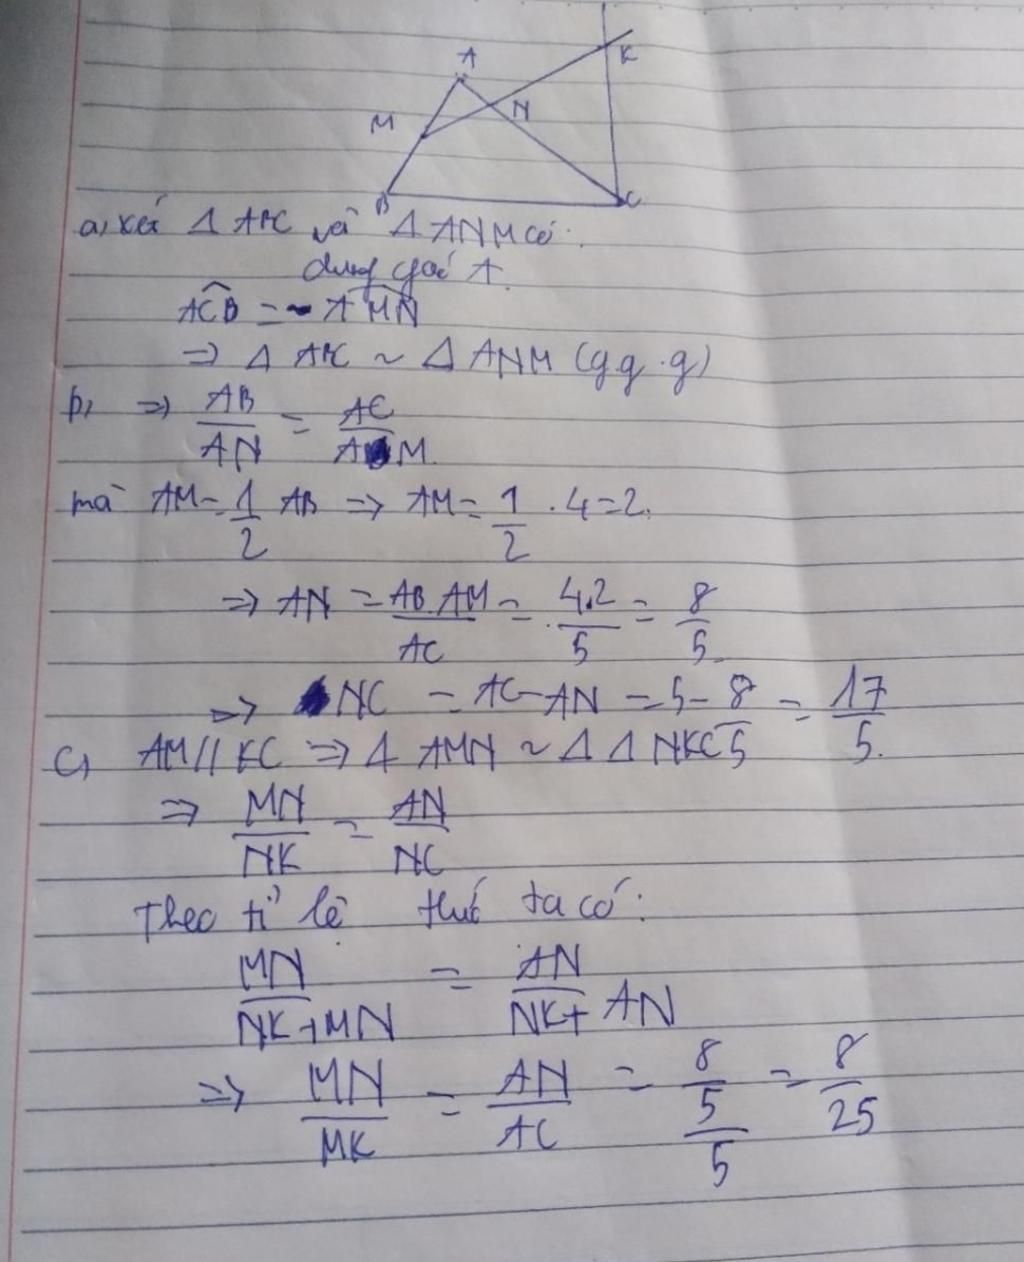 A
K
M
N
B
C
a, xét Δ ABC và Δ ANM có:
chung góc A.
ACB = AMN
=> Δ ABC ~ Δ ANM (g.g.g)
b, => AB/AN = AC/AM.
mà AM = 1/2 AB => AM = 1/2 . 4 = 2.
=> AN = AB.AM/AC = 4.2/5 = 8/5
=> NC = AC - AN = 5 - 8/5 = 17/5.
c, AM // KC => Δ AMN ~ Δ Δ NKC
=> MN/NK = AN/NC
Theo tỉ lệ thức ta có:
MN/NK+MN = AN/NK+AN
=> MN/MK = AN/AC = 8/5/5 = 8/25